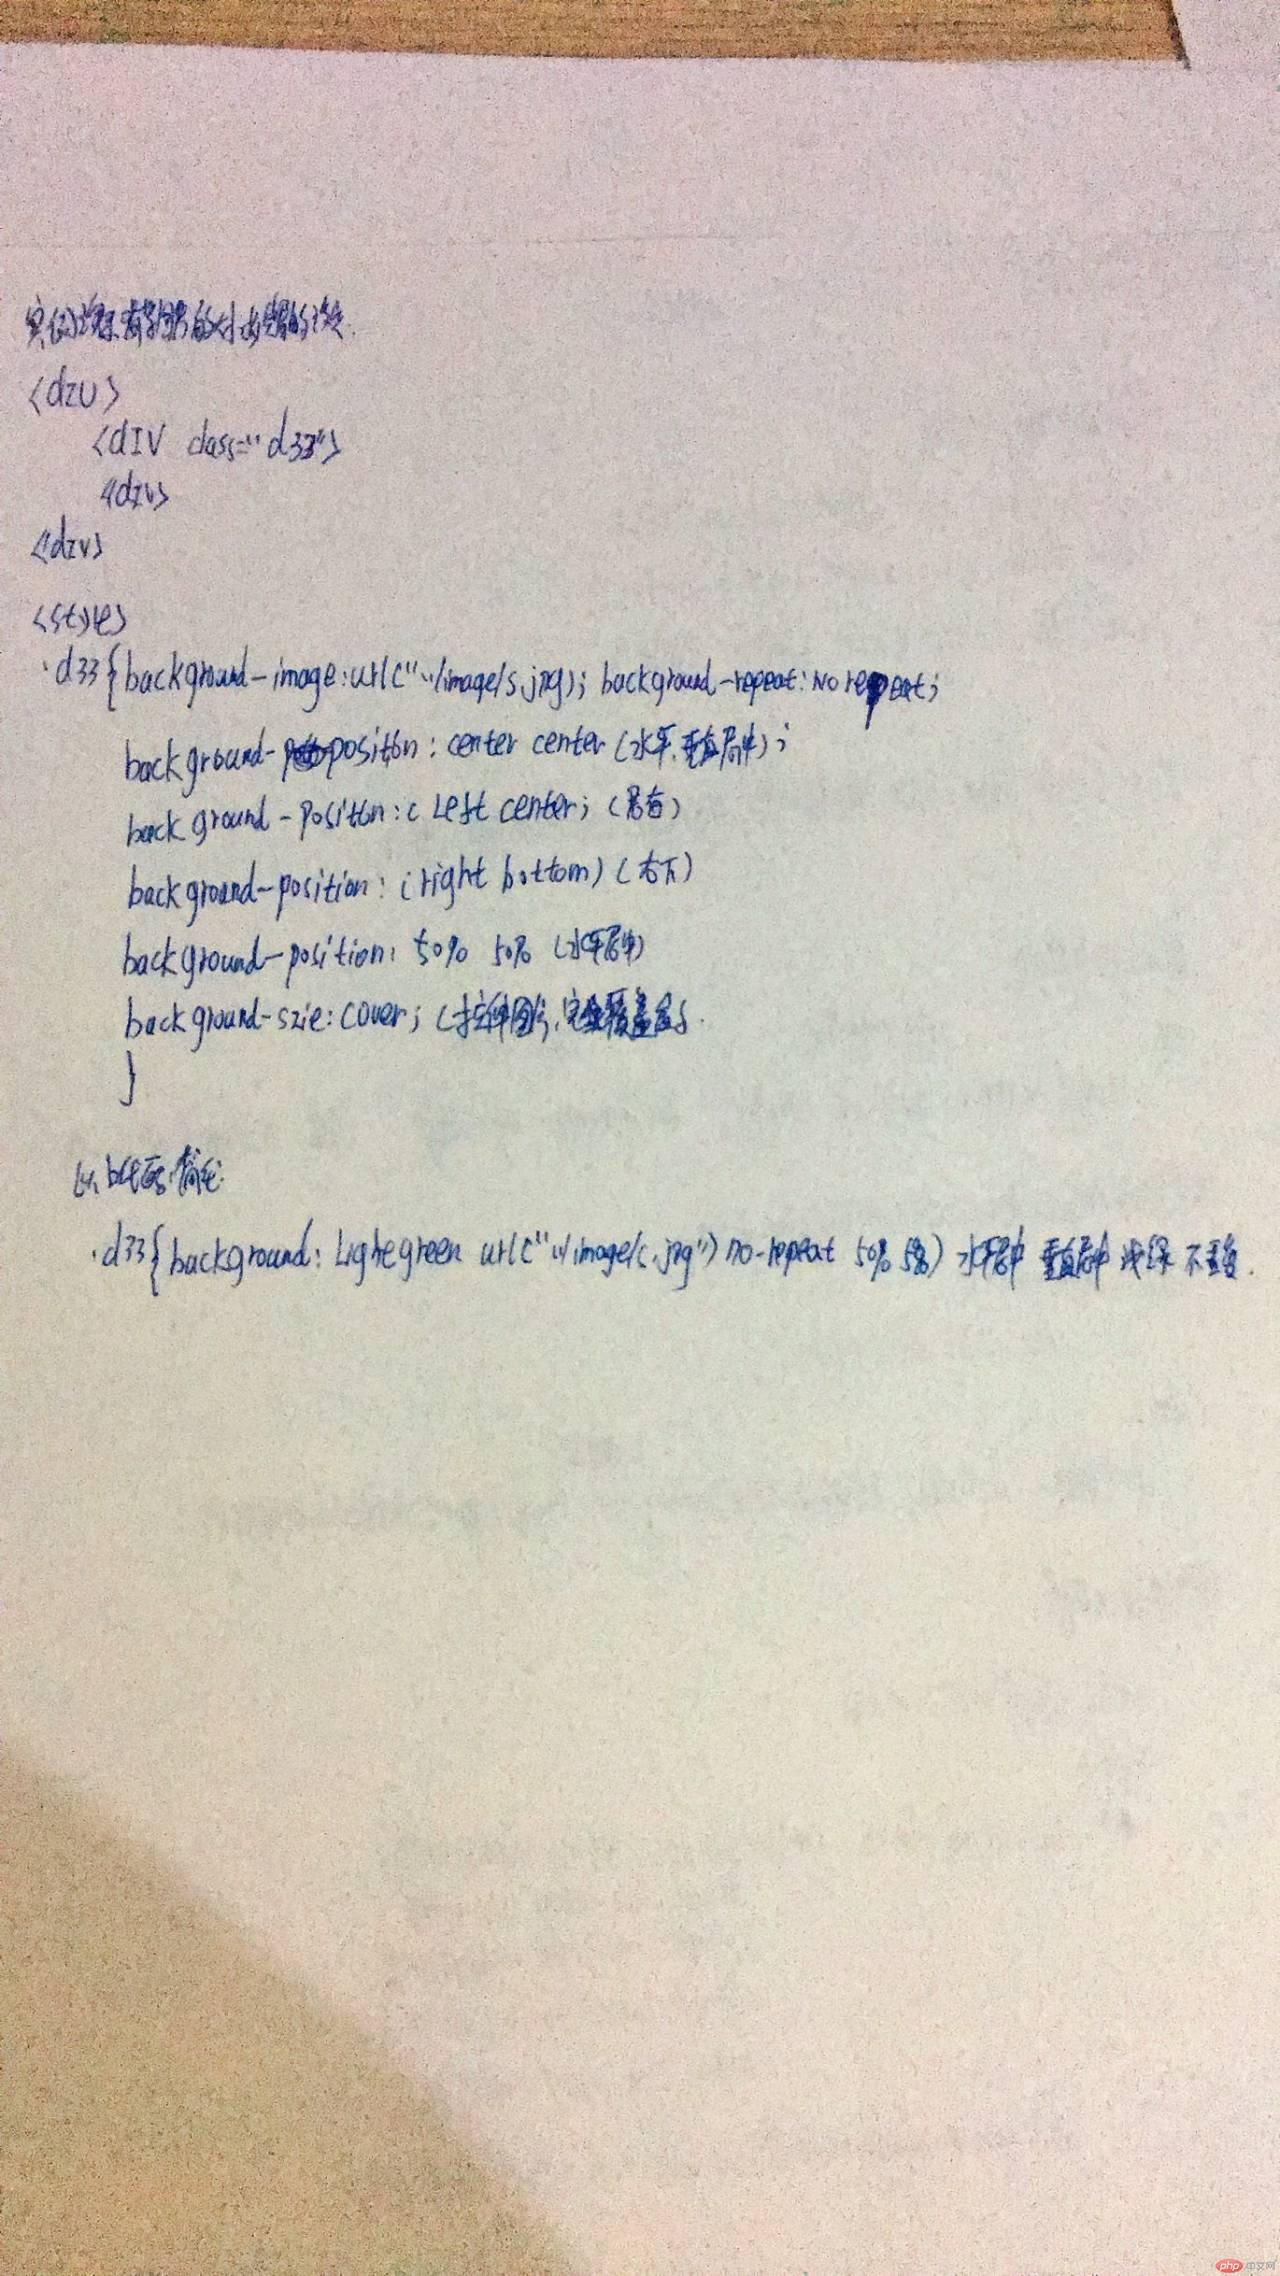 <dIv>
<dIV class="d33">
</dIv>
</dIv>
<style>
.d33{background-image:url("../image/s.jpg); background-repeat:No repeat;
background-position: center center (水平.垂直居中);
background-position:( Left center;
background-position: (right bottom) (右下)
background-position: 50% 50% (水平居中)
background-szie: cover; (拉伸图片,完全覆盖
}
.d33{background: Lighegreen url("../image/s.jpg") no-repeat 50% 5%) 水平居中 垂直居中 浅绿 不重复.
php 中文网